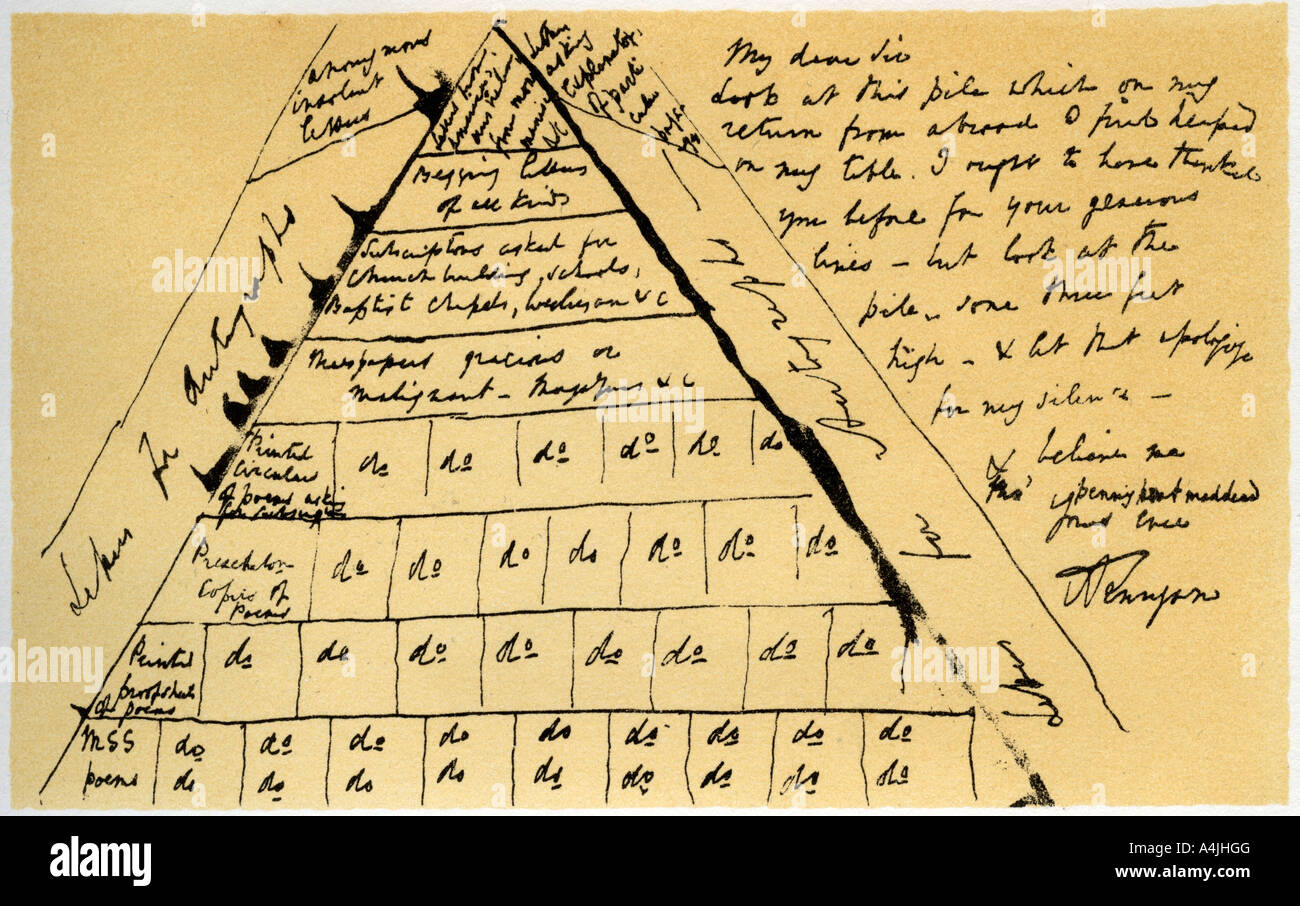 anonymous
insolent
letters
Letters for autographs
asking
explanatory
of parti
cular
from
money
&c
Begging letters
of all kinds
Subscriptions asked for
Church building, schools,
Baptist chapels, Wesleyan & c
Newspapers gracious or
malignant - Magazines & c
Printed
Circulars
of poems asking
for subscription
do do do do do do
Presentation
Copies of
Poems
do do do do do do do
Printed
proofsheets
of poems
do do do do do do do do
MSS do do do do do do do do do
poems do do do do do do do do do
Letters for autographs
My dear Sir
Look at this pile which on my
return from abroad I find heaped
on my table. I ought to have thanked
you before for your generous
lines - but look at the
pile, some three feet
high - & let that apologize
for my silence -
& believe me
tho' penny post maddened
yours ever
A Tennyson
alamy
Image ID: A4JHGG
www.alamy.com